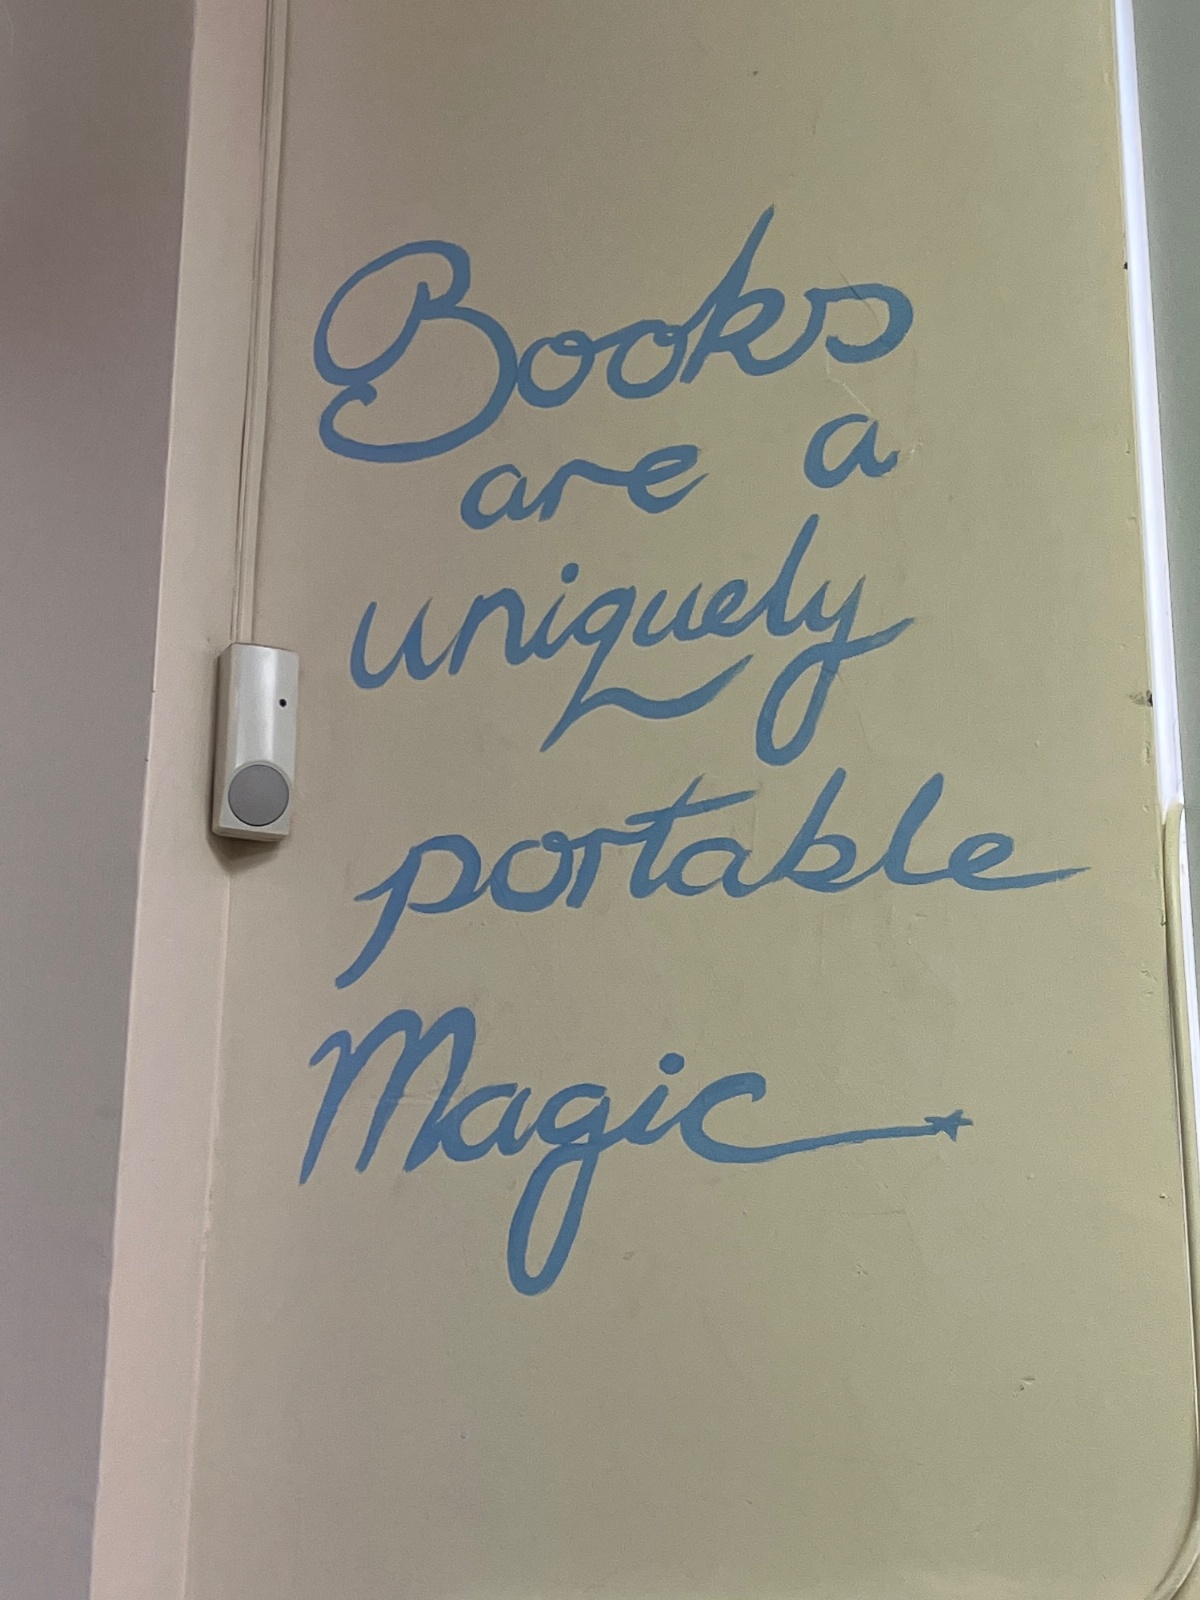 Books
are a
uniquely
portable
Magic